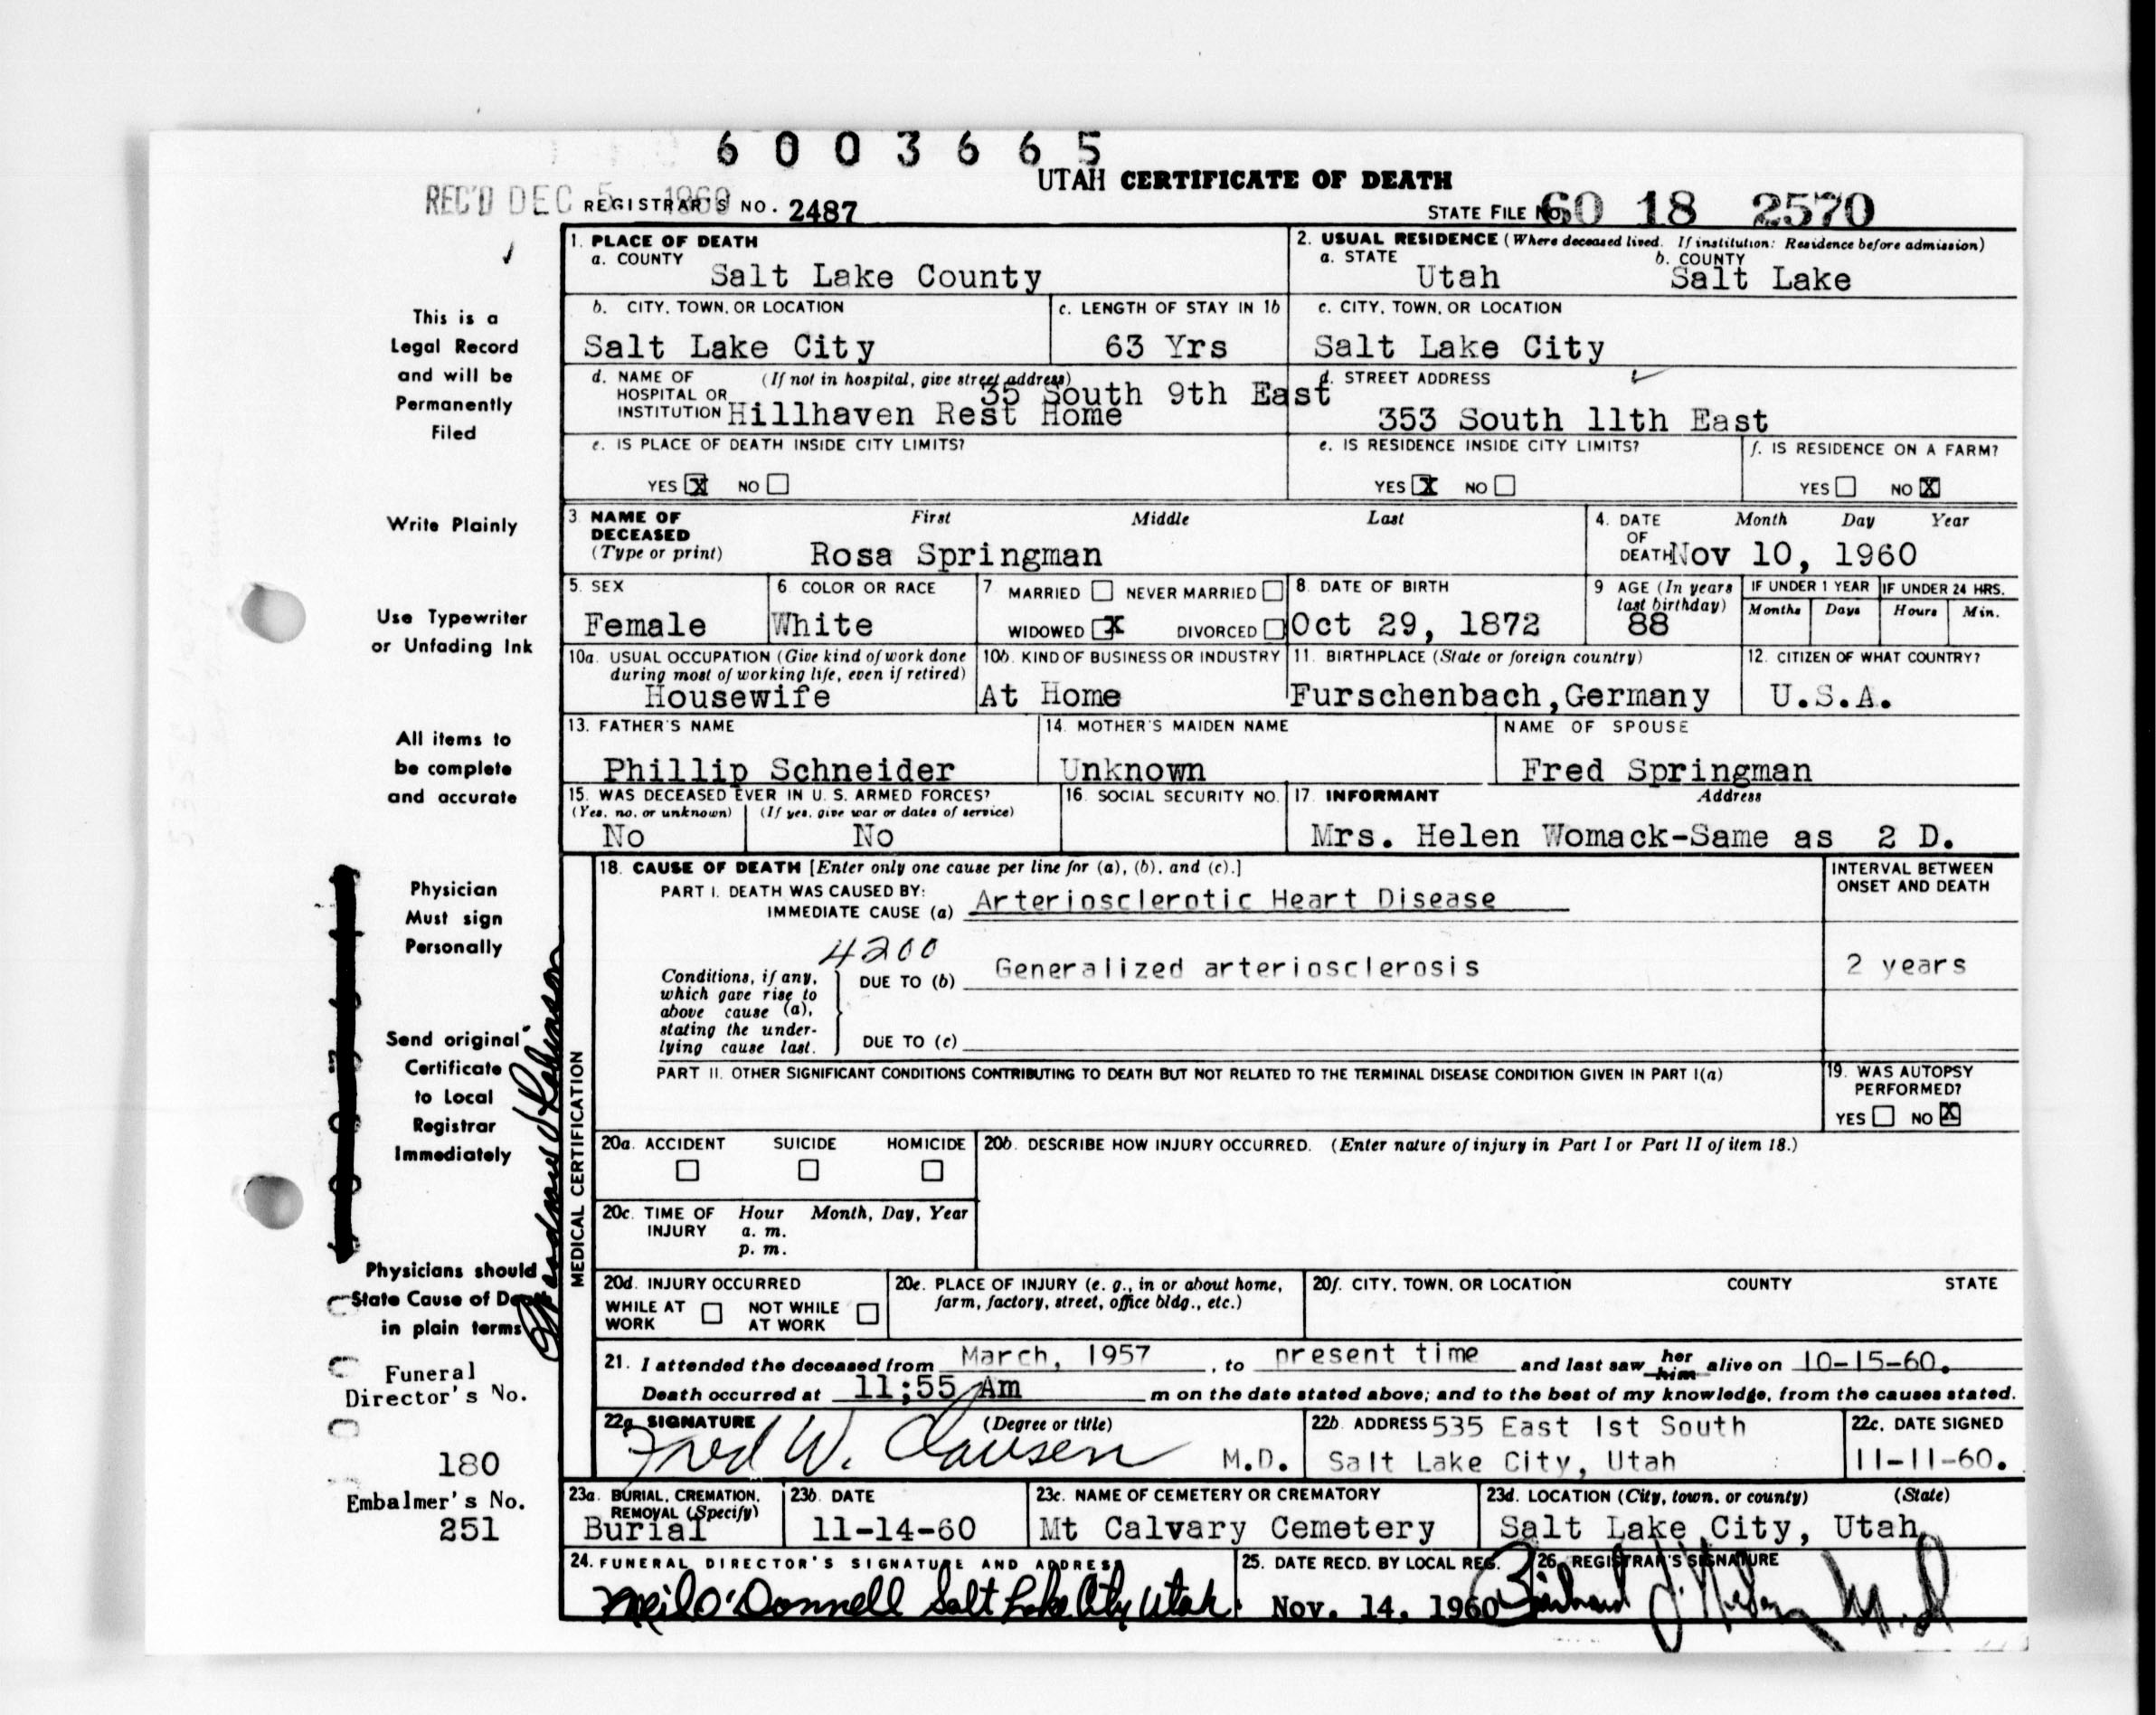 6 0 0 3 6 6 5
UTAH CERTIFICATE OF DEATH
REC'D DEC 5 1960 REGISTRAR'S NO. 2487
STATE FILE NO. 60 18 2570
1. PLACE OF DEATH
a. COUNTY
Salt Lake County
2. USUAL RESIDENCE (Where deceased lived. If institution: Residence before admission)
a. STATE b. COUNTY
Utah Salt Lake
b. CITY, TOWN, OR LOCATION
Salt Lake City
c. LENGTH OF STAY IN 1b
63 Yrs
c. CITY, TOWN, OR LOCATION
Salt Lake City
d. NAME OF HOSPITAL OR INSTITUTION (If not in hospital, give street address)
35 South 9th East
Hillhaven Rest Home
d. STREET ADDRESS
353 South 11th East
e. IS PLACE OF DEATH INSIDE CITY LIMITS?
YES X NO
e. IS RESIDENCE INSIDE CITY LIMITS?
YES X NO
f. IS RESIDENCE ON A FARM?
YES NO X
3. NAME OF DECEASED (Type or print)
First Middle Last
Rosa Springman
4. DATE OF DEATH Month Day Year
Nov 10, 1960
5. SEX
Female
6 COLOR OR RACE
White
7 MARRIED NEVER MARRIED
WIDOWED X DIVORCED
8 DATE OF BIRTH
Oct 29, 1872
9 AGE (In years last birthday)
88
IF UNDER 1 YEAR
Months Days
IF UNDER 24 HRS.
Hours Min.
10a. USUAL OCCUPATION (Give kind of work done during most of working life, even if retired)
Housewife
10b. KIND OF BUSINESS OR INDUSTRY
At Home
11. BIRTHPLACE (State or foreign country)
Furschenbach,Germany
12. CITIZEN OF WHAT COUNTRY?
U.S.A.
13. FATHER'S NAME
Phillip Schneider
14. MOTHER'S MAIDEN NAME
Unknown
NAME OF SPOUSE
Fred Springman
15. WAS DECEASED EVER IN U. S. ARMED FORCES?
(Yes, no, or unknown) (If yes, give war or dates of service)
No No
16. SOCIAL SECURITY NO.
17. INFORMANT Address
Mrs. Helen Womack-Same as 2 D.
MEDICAL CERTIFICATION
18. CAUSE OF DEATH [Enter only one cause per line for (a), (b), and (c).]
INTERVAL BETWEEN ONSET AND DEATH
PART I. DEATH WAS CAUSED BY:
IMMEDIATE CAUSE (a) Arteriosclerotic Heart Disease
4200
Conditions, if any, which gave rise to above cause (a), stating the underlying cause last.
DUE TO (b) Generalized arteriosclerosis
2 years
DUE TO (c)
PART II. OTHER SIGNIFICANT CONDITIONS CONTRIBUTING TO DEATH BUT NOT RELATED TO THE TERMINAL DISEASE CONDITION GIVEN IN PART I(a)
19. WAS AUTOPSY PERFORMED?
YES NO X
20a. ACCIDENT SUICIDE HOMICIDE
20b. DESCRIBE HOW INJURY OCCURRED. (Enter nature of injury in Part I or Part II of item 18.)
20c. TIME OF INJURY Hour Month, Day, Year
a. m.
p. m.
20d. INJURY OCCURRED
WHILE AT WORK NOT WHILE AT WORK
20e. PLACE OF INJURY (e. g., in or about home, farm, factory, street, office bldg., etc.)
20f. CITY, TOWN, OR LOCATION COUNTY STATE
21. I attended the deceased from March, 1957, to present time and last saw her him alive on 10-15-60.
Death occurred at 11;55 Am m on the date stated above; and to the best of my knowledge, from the causes stated.
22a. SIGNATURE (Degree or title)
Fred W. Clausen M.D.
22b. ADDRESS 535 East 1st South
Salt Lake City, Utah
22c. DATE SIGNED
11-11-60.
23a. BURIAL, CREMATION, REMOVAL (Specify)
Burial
23b. DATE
11-14-60
23c. NAME OF CEMETERY OR CREMATORY
Mt Calvary Cemetery
23d. LOCATION (City, town, or county) (State)
Salt Lake City, Utah
24. FUNERAL DIRECTOR'S SIGNATURE AND ADDRESS
Neil O'Donnell Salt Lake City Utah.
25. DATE RECD. BY LOCAL REG.
Nov. 14. 1960
26. REGISTRAR'S SIGNATURE
This is a
Legal Record
and will be
Permanently
Filed
Write Plainly
Use Typewriter
or Unfading Ink
All items to
be complete
and accurate
Physician
Must sign
Personally
Send original
Certificate
to Local
Registrar
Immediately
Physicians should
State Cause of Death
in plain terms
Funeral
Director's No.
180
Embalmer's No.
251